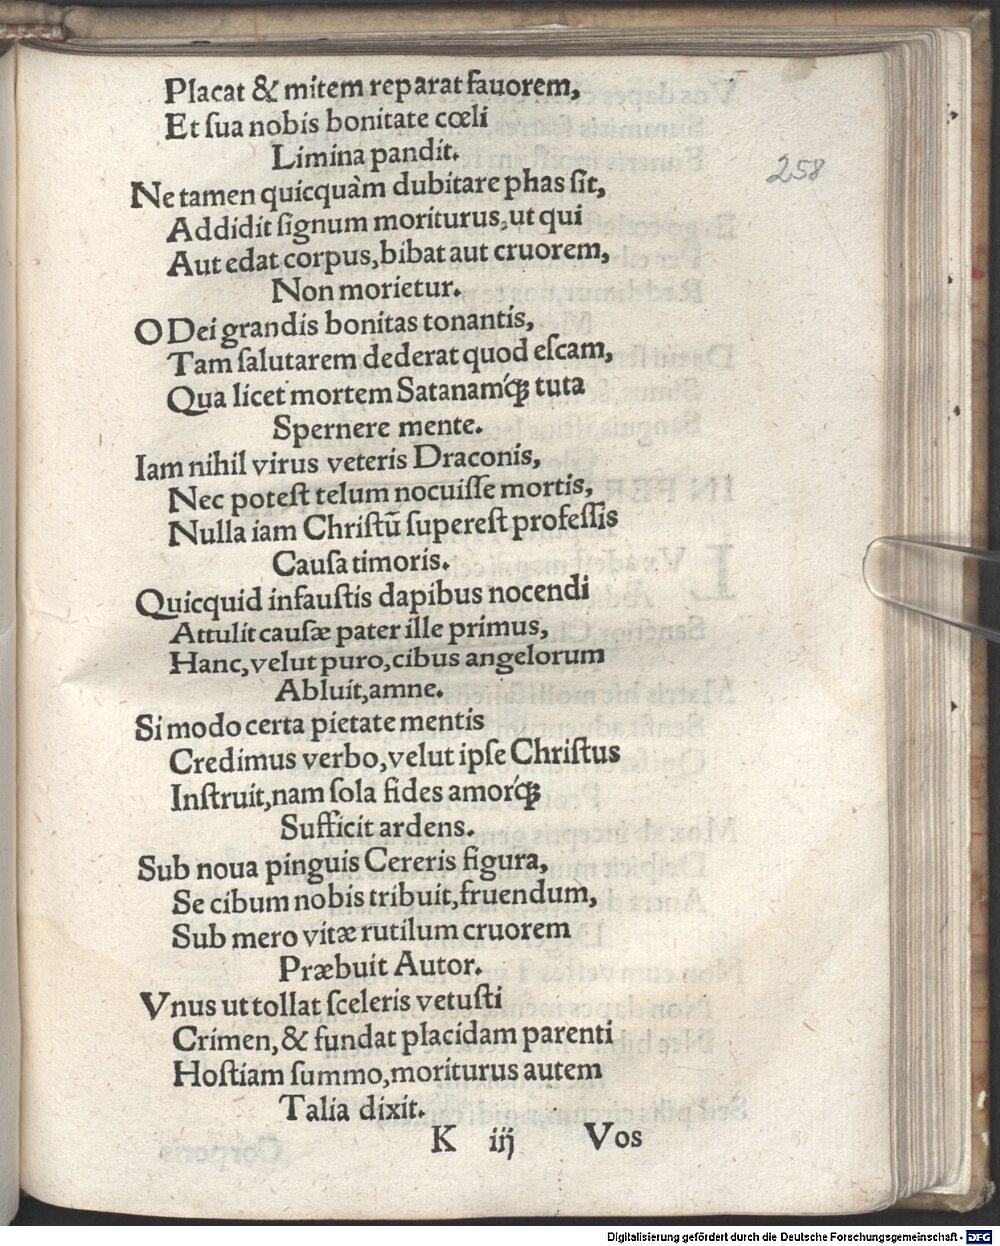 Placat & mitem reparat fauorem,
Et ſua nobis bonitate cœli
Limina pandit.
258
Ne tamen quicquàm dubitare phas ſit,
Addidit ſignum moriturus, ut qui
Aut edat corpus, bibat aut cruorem,
Non morietur.
O Dei grandis bonitas tonantis,
Tam ſalutarem dederat quod eſcam,
Qua licet mortem Satanamq́ꝫ tuta
Spernere mente.
Iam nihil virus veteris Draconis,
Nec poteſt telum nocuiſſe mortis,
Nulla iam Chriſtũ ſupereſt profeſſis
Cauſa timoris.
Quicquid infauſtis dapibus nocendi
Attulit cauſæ pater ille primus,
Hanc, velut puro, cibus angelorum
Abluit, amne.
Si modo certa pietate mentis
Credimus verbo, velut ipſe Chriſtus
Inſtruit, nam ſola fides amorq́ꝫ
Sufficit ardens.
Sub noua pinguis Cereris figura,
Se cibum nobis tribuit, fruendum,
Sub mero vitæ rutilum cruorem
Præbuit Autor.
Vnus ut tollat ſceleris vetuſti
Crimen, & fundat placidam parenti
Hoſtiam ſummo, moriturus autem
Talia dixit.
K iij Vos
Digitalisierung gefördert durch die Deutsche Forschungsgemeinschaft - DFG